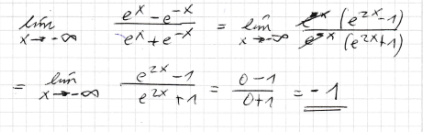 lim x→-∞ (e^x - e^-x)/(e^x + e^-x) = lim x→-∞ (e^-x (e^2x - 1))/(e^-x (e^2x + 1))
= lim x→-∞ (e^2x - 1)/(e^2x + 1) = (0 - 1)/(0 + 1) = -1